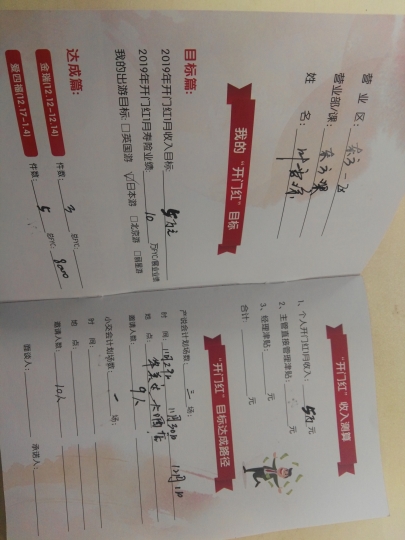 营业区：东方一区
营业部/课：
姓名：
我的“开门红”目标
目标篇：
2019年开门红1月收入目标：5万元
2019年开门红1月寿险业绩：10万FYC/展业业绩
我的出游目标：□英国游 ☑日本游 □北京游
达成篇：
金瑞(12.12-12.14) 件数：3 总FYC：
爱四福(12.17-1.4) 件数：5 总FYC：8000
“开门红”收入测算
1、个人开门红1月收入：5万元
2、主管直接管理津贴：元
3、经理津贴：元
合计：元
“开门红”目标达成路径
产说会计划场数：三场：
时间：11月23号 11月30日 12月1日
地点：大酒店
邀请人数：9人
小交会计划场数：一场：
时间：
地点：
邀请人数：10人
缴谈人：
承诺人：